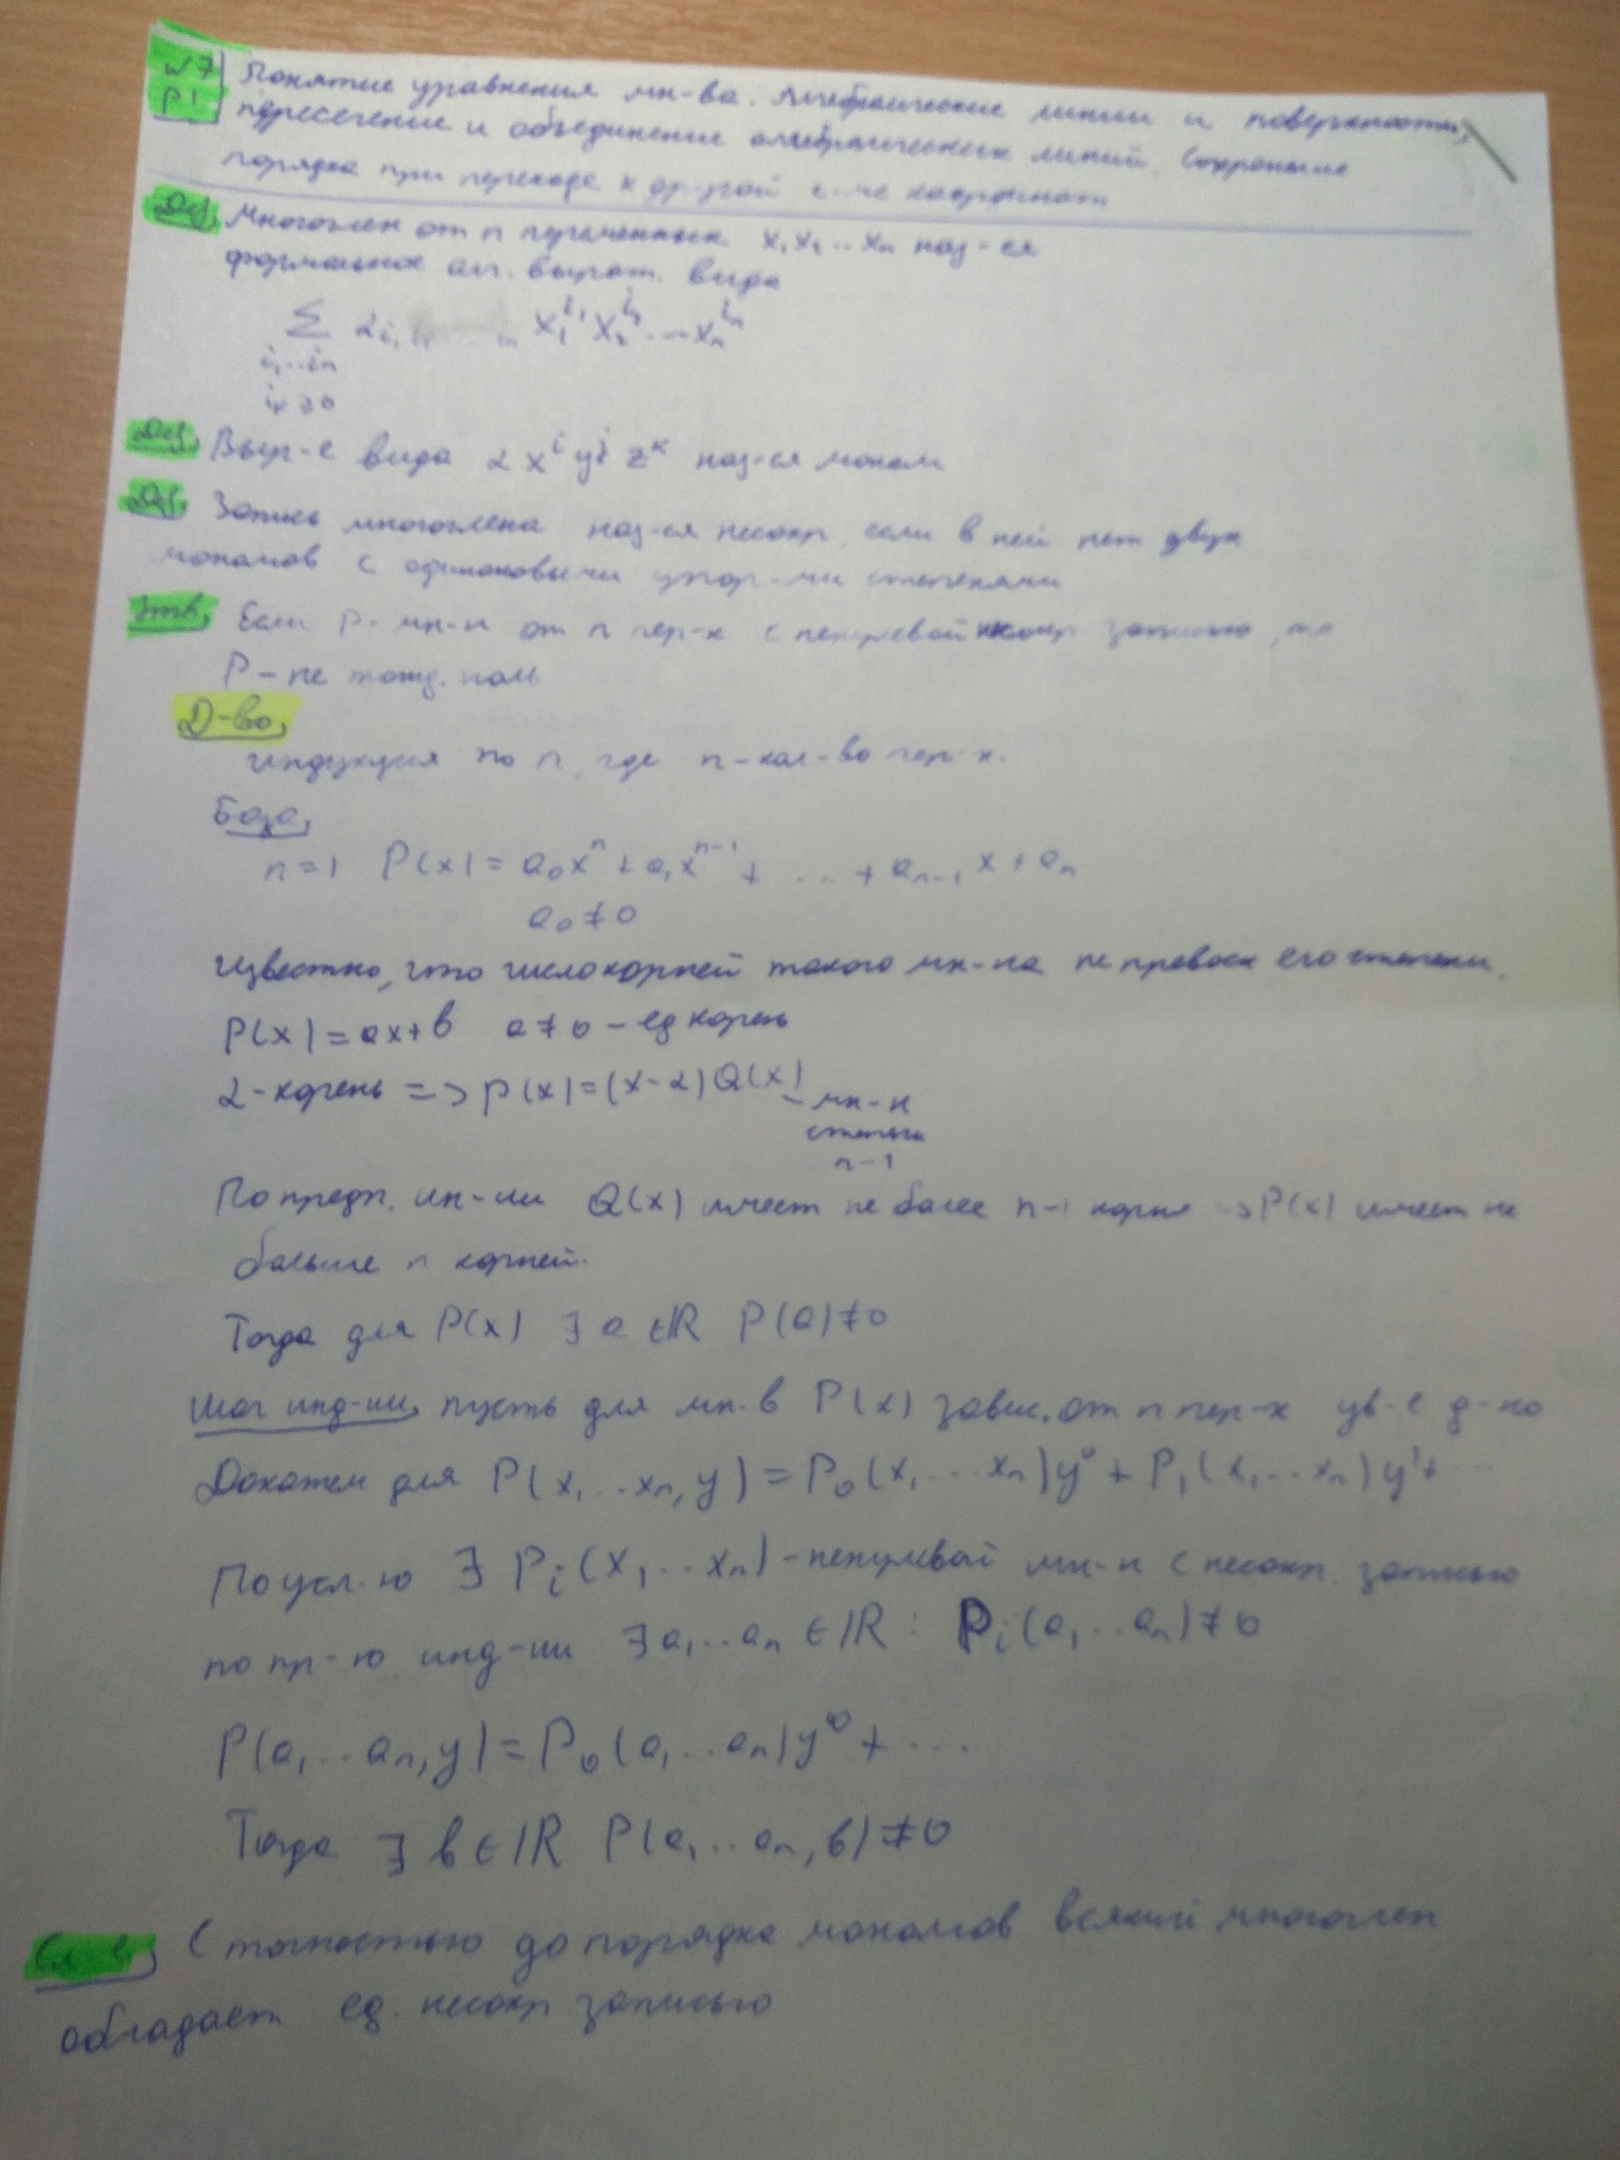 №7 Понятие уравнения мн-ва. Алгебраические линии и поверхности,
P1 пересечение и объединение алгебраических линий. Сохранение
порядка при переходе к другой с-ме координат
Def, Многочлен от n переменных x₁x₂...xₙ наз-ся
формальное алг. выраж. вида
Σ α_{i₁i₂...iₙ} x₁^{i₁} x₂^{i₂} ... xₙ^{iₙ}
i₁...iₙ
iₖ ≥ 0
Def, Выр-е вида α xⁱ yʲ zᵏ наз-ся моном
Def, Запись многочлена наз-ся несокр, если в ней нет двух
мономов с одинаковыми упор-ми степенями
Утв, Если P - мн-н от n пер-х с ненулевой несокр записью, то
P - не тожд. ноль
Д-во,
индукция по n, где n - кол-во пер-х.
База,
n=1 P(x) = a₀xⁿ + a₁xⁿ⁻¹ + ... + aₙ₋₁x + aₙ
a₀ ≠ 0
Известно, что число корней такого мн-на не превосх его степени.
P(x) = ax + b a ≠ 0 - ед корень
α - корень => P(x) = (x-α) Q(x)
- мн-н
степени
n-1
По предп. ин-ии Q(x) имеет не более n-1 корня => P(x) имеет не
больше n корней.
Тогда для P(x) ∃ a ∈ ℝ P(a) ≠ 0
Шаг инд-ии, пусть для мн-в P(x) завис. от n пер-х ув-е д-но
Докажем для P(x₁...xₙ, y) = P₀(x₁...xₙ)y⁰ + P₁(x₁...xₙ)y¹ + ...
По усл-ю ∃ Pᵢ(x₁...xₙ) - ненулевой мн-н с несокр. записью
по пр-ю инд-ии ∃ a₁...aₙ ∈ ℝ : Pᵢ(a₁...aₙ) ≠ 0
P(a₁...aₙ, y) = P₀(a₁...aₙ)y⁰ + ...
Тогда ∃ b ∈ ℝ P(a₁...aₙ, b) ≠ 0
С точностью до порядка мономов всякий многочлен
обладает ед. несокр записью